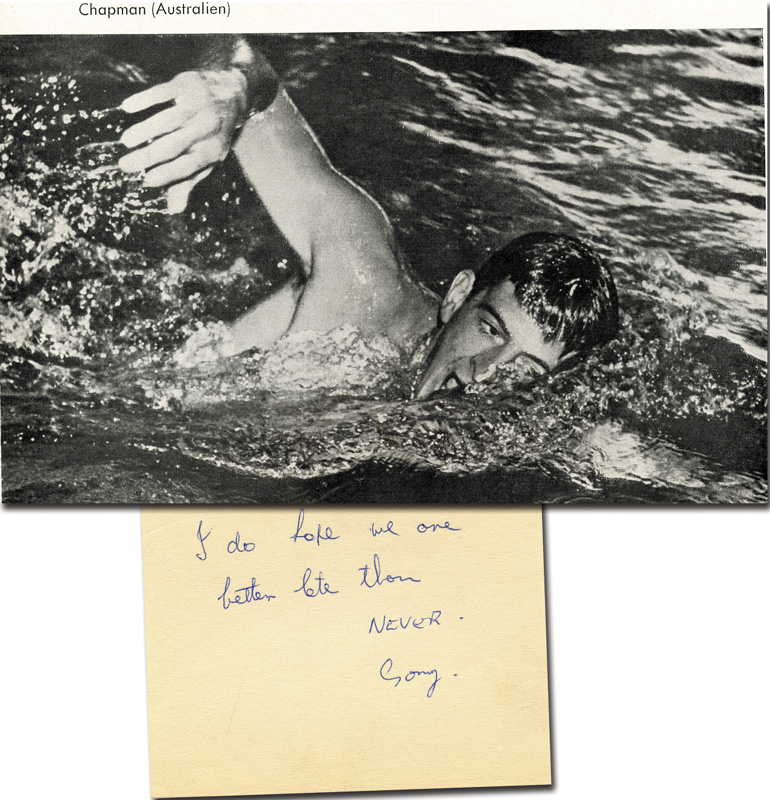 Chapman (Australien)
I do hope we are
better late than
NEVER.
Gary.